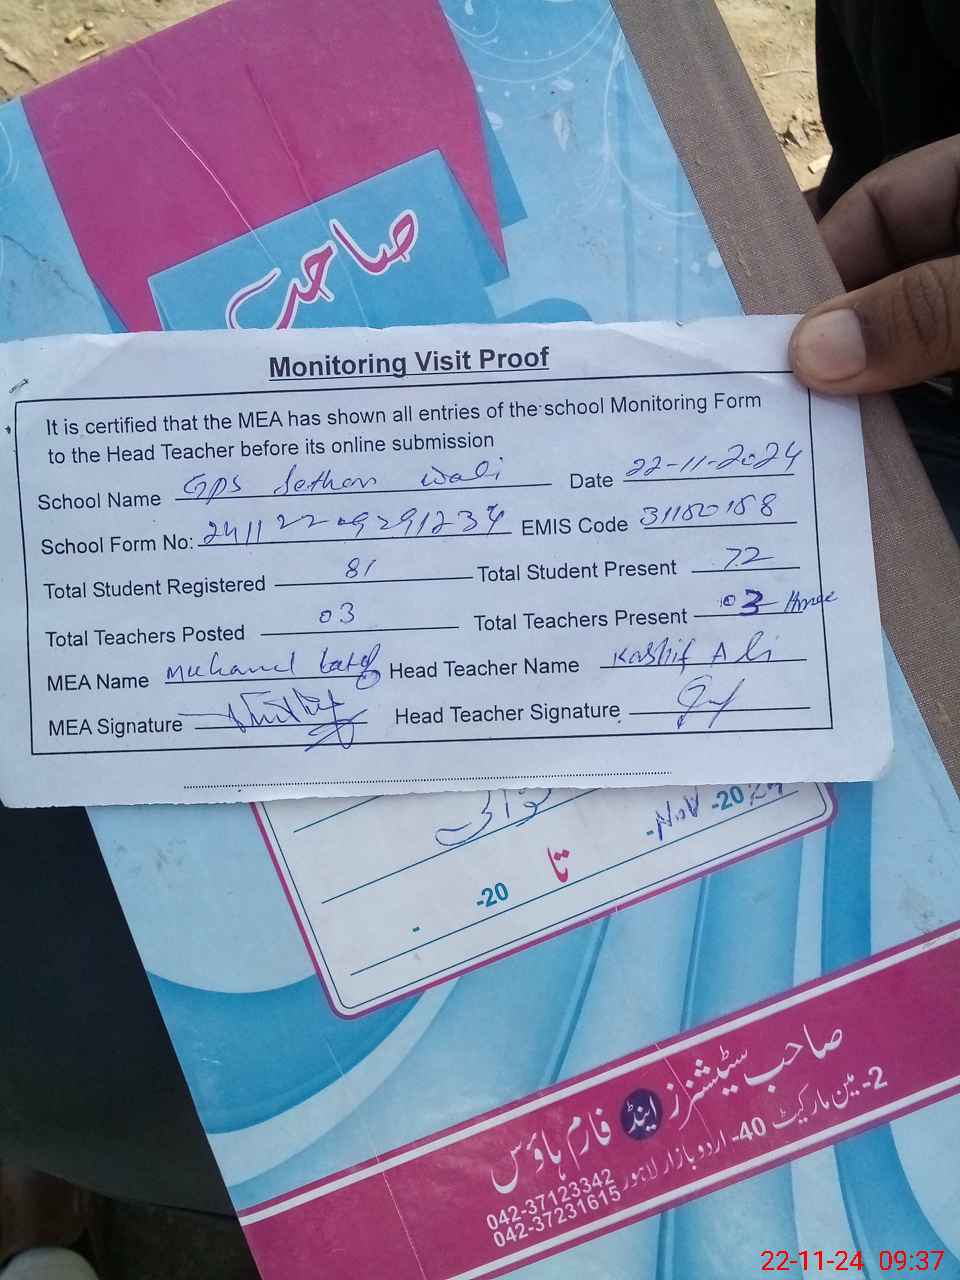 صاحب
Monitoring Visit Proof
It is certified that the MEA has shown all entries of the school Monitoring Form
to the Head Teacher before its online submission
School Name GPS Jethan Wali Date 22-11-2024
School Form No: 241122091234 EMIS Code 31150158
Total Student Registered 81 Total Student Present 72
Total Teachers Posted 03 Total Teachers Present 03
MEA Name Head Teacher Name Kashif Ali
MEA Signature Head Teacher Signature
-Nov -2024
- -20 تا
صاحب سٹیشنرز اینڈ فارم ہاؤس
2- مین مارکیٹ 40- اردو بازار لاہور
042-37123342
042-37231615
22-11-24 09:37